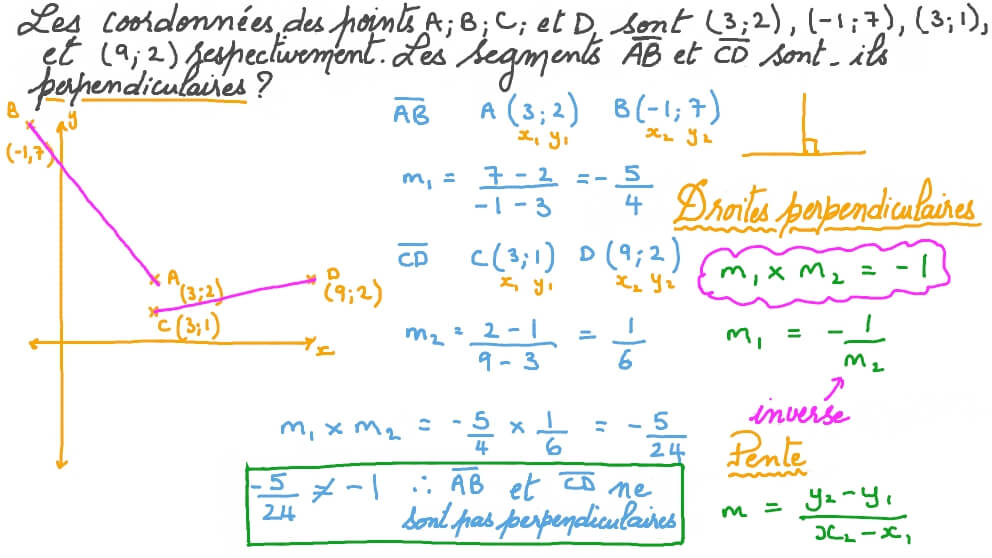 Les coordonnées des points A; B; C; et D sont (3;2), (-1;7), (3;1),
et (9;2) respectivement. Les segments A̅B̅ et C̅D̅ sont-ils
perpendiculaires?
B
y
(-1,7)
A
(3;2)
C (3;1)
D
(9;2)
x
A̅B̅ A (3;2) B(-1;7)
x₁ y₁ x₂ y₂
m₁ = (7 - 2)/(-1 - 3) = - 5/4
C̅D̅ C(3;1) D (9;2)
x₁ y₁ x₂ y₂
m₂ = (2 - 1)/(9 - 3) = 1/6
m₁ × m₂ = - 5/4 × 1/6 = - 5/24
-5/24 ≠ -1 ∴ A̅B̅ et C̅D̅ ne
sont pas perpendiculaires
Droites perpendiculaires
m₁ × m₂ = -1
m₁ = - 1/m₂
inverse
Pente
m = (y₂ - y₁)/(x₂ - x₁)